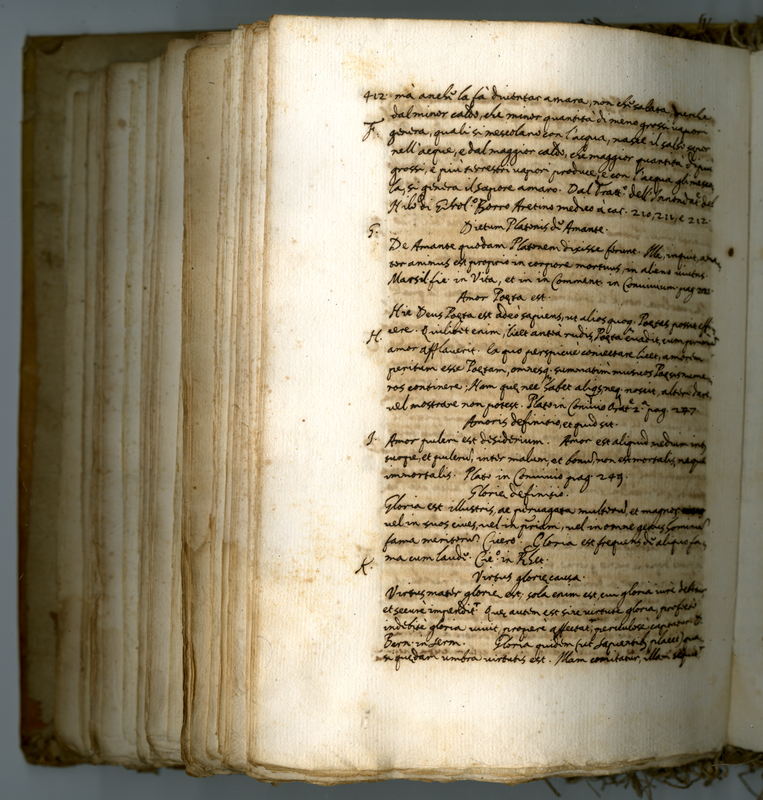 412. mà anch la fà diventar amara, non ch salata, perche
dal minor caldo, che minor quantità di meno grossi vapori
F. genera, quali si mescolano con l'acqua, nasce il salso sapor
nell'acque, e dal maggior caldo, che maggior quantità di più
grossi, e più terrestri vapori produce, e con l'acqua gli mesco
la, si genera il sapore amaro. Dal Tratt.º dell' del
Nilo di Borro Aretino medico à car. 210, 211, e 212.
G. Dictum Platonis d Amante.
De Amante quodam Platonem dixisse ferunt. Ille, inquit, ama
tor animus est proprio in corpore mortuus, in alieno vivens
Marsil fic. in Vita, et in in Comment. in Convivium pag.
Amor Poeta est.
Hic Deus Poeta est adeò sapiens, ut alios quoq. Poetas possit eff
H. cere. Quilibet enim, licet anteà rudis, Poeta evadit, cum primum
amor afflaverit. la quo perspicue coniectare licet, amorem
peritum esse Poetam, omnesq. summatim musicos Poesis nume
ros continere; Nam que nec habet aliq. neq. noscit, alteri dare
vel mostrare non potest. Plato in Convivio pag. 247.
Amoris definitio, et quid sit.
I. Amor pulcri est desiderium. Amor est aliquid medium int
turpe, et pulcru, inter malum, et bonu, non est mortalis, neque
immortalis. Plato in Convivio pag. 249.
Glorie definitio.
Gloria est illustris, ac pervagata multoru, et magnor
vel in suos cives, vel in priam, vel in omne genus hominu
fama meritoru. Cicero. Gloria est frequens d aliquo fa
K. ma cum laud. Cic.º in Rhet.
Virtus glorie causa.
Virtus mater glorie est, sola enim est, cui gloria iure debetur
et secure impendit. Que autem est sine virtute gloria, profecto
indebite gloria venit, propere affectat, periculose
Bern. in serm. Gloria quidem (ut sapientib. placet) qua
si quedam umbra virtutis est. Nam comitatur, illam